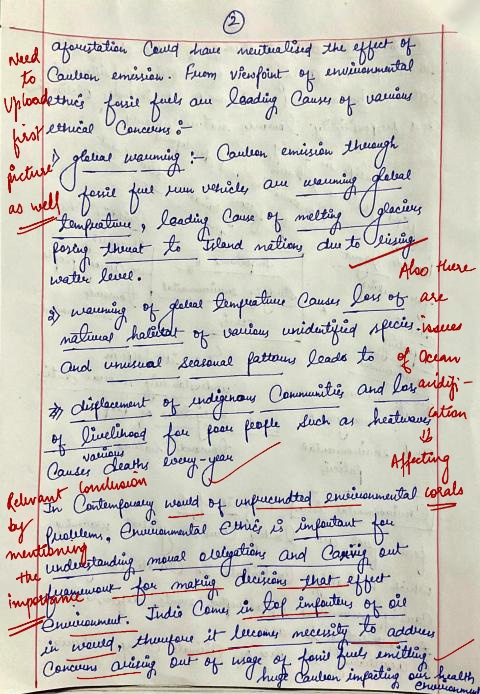 2
aforestation Could have neutralised the effect of
Carbon emission. From viewpoint of environmental
ethics fossil fuels are leading Causes of various
ethical Concerns:-
1) global warming:- Carbon emission through
fossil fuel run vehicles are warming global
temperature, leading Cause of melting glaciers
posing threat to Island nations due to rising
water level.
2) warming of global temperature Causes loss of
natural habitat of various unidentified species.
and unusual seasonal patterns leads to
3) displacement of indigenous Communities and loss
of livelihood for poor people such as heatwaves
various
Causes deaths every-year
In Contemporary world of unprecedented environmental
problems, Environmental Ethics is important for
understanding moral obligations and Carving out
framework for making decisions that effect
Environment. India Comes in top importers of oil
in world, therefore it becomes necessity to address
Concerns arising out of usage of fossil fuels emitting
huge Carbon impacting our health
environment
Need
to
Upload
first
picture
as well
Also there
are
issues
of Ocean
acidifi-
cation
Affecting
corals
Relevant conclusion
by
mentioning
the
importance